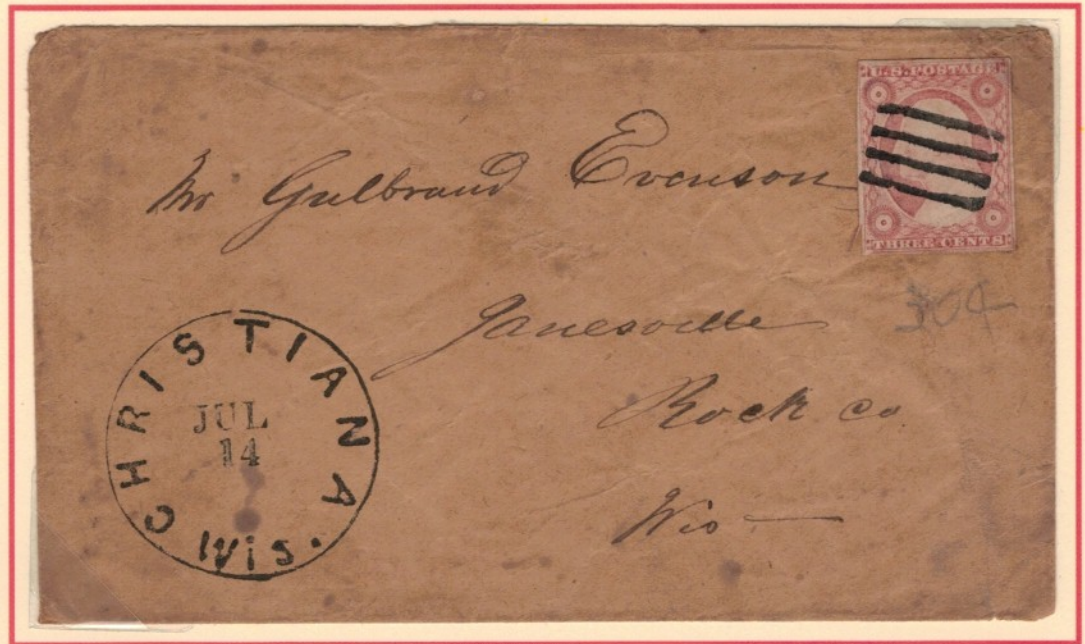 U.S. POSTAGE
THREE CENTS
Mr Gulbrand Evenson
Janesville
Rock co
Wis
CHRISTIANA.
Wis
JUL
14